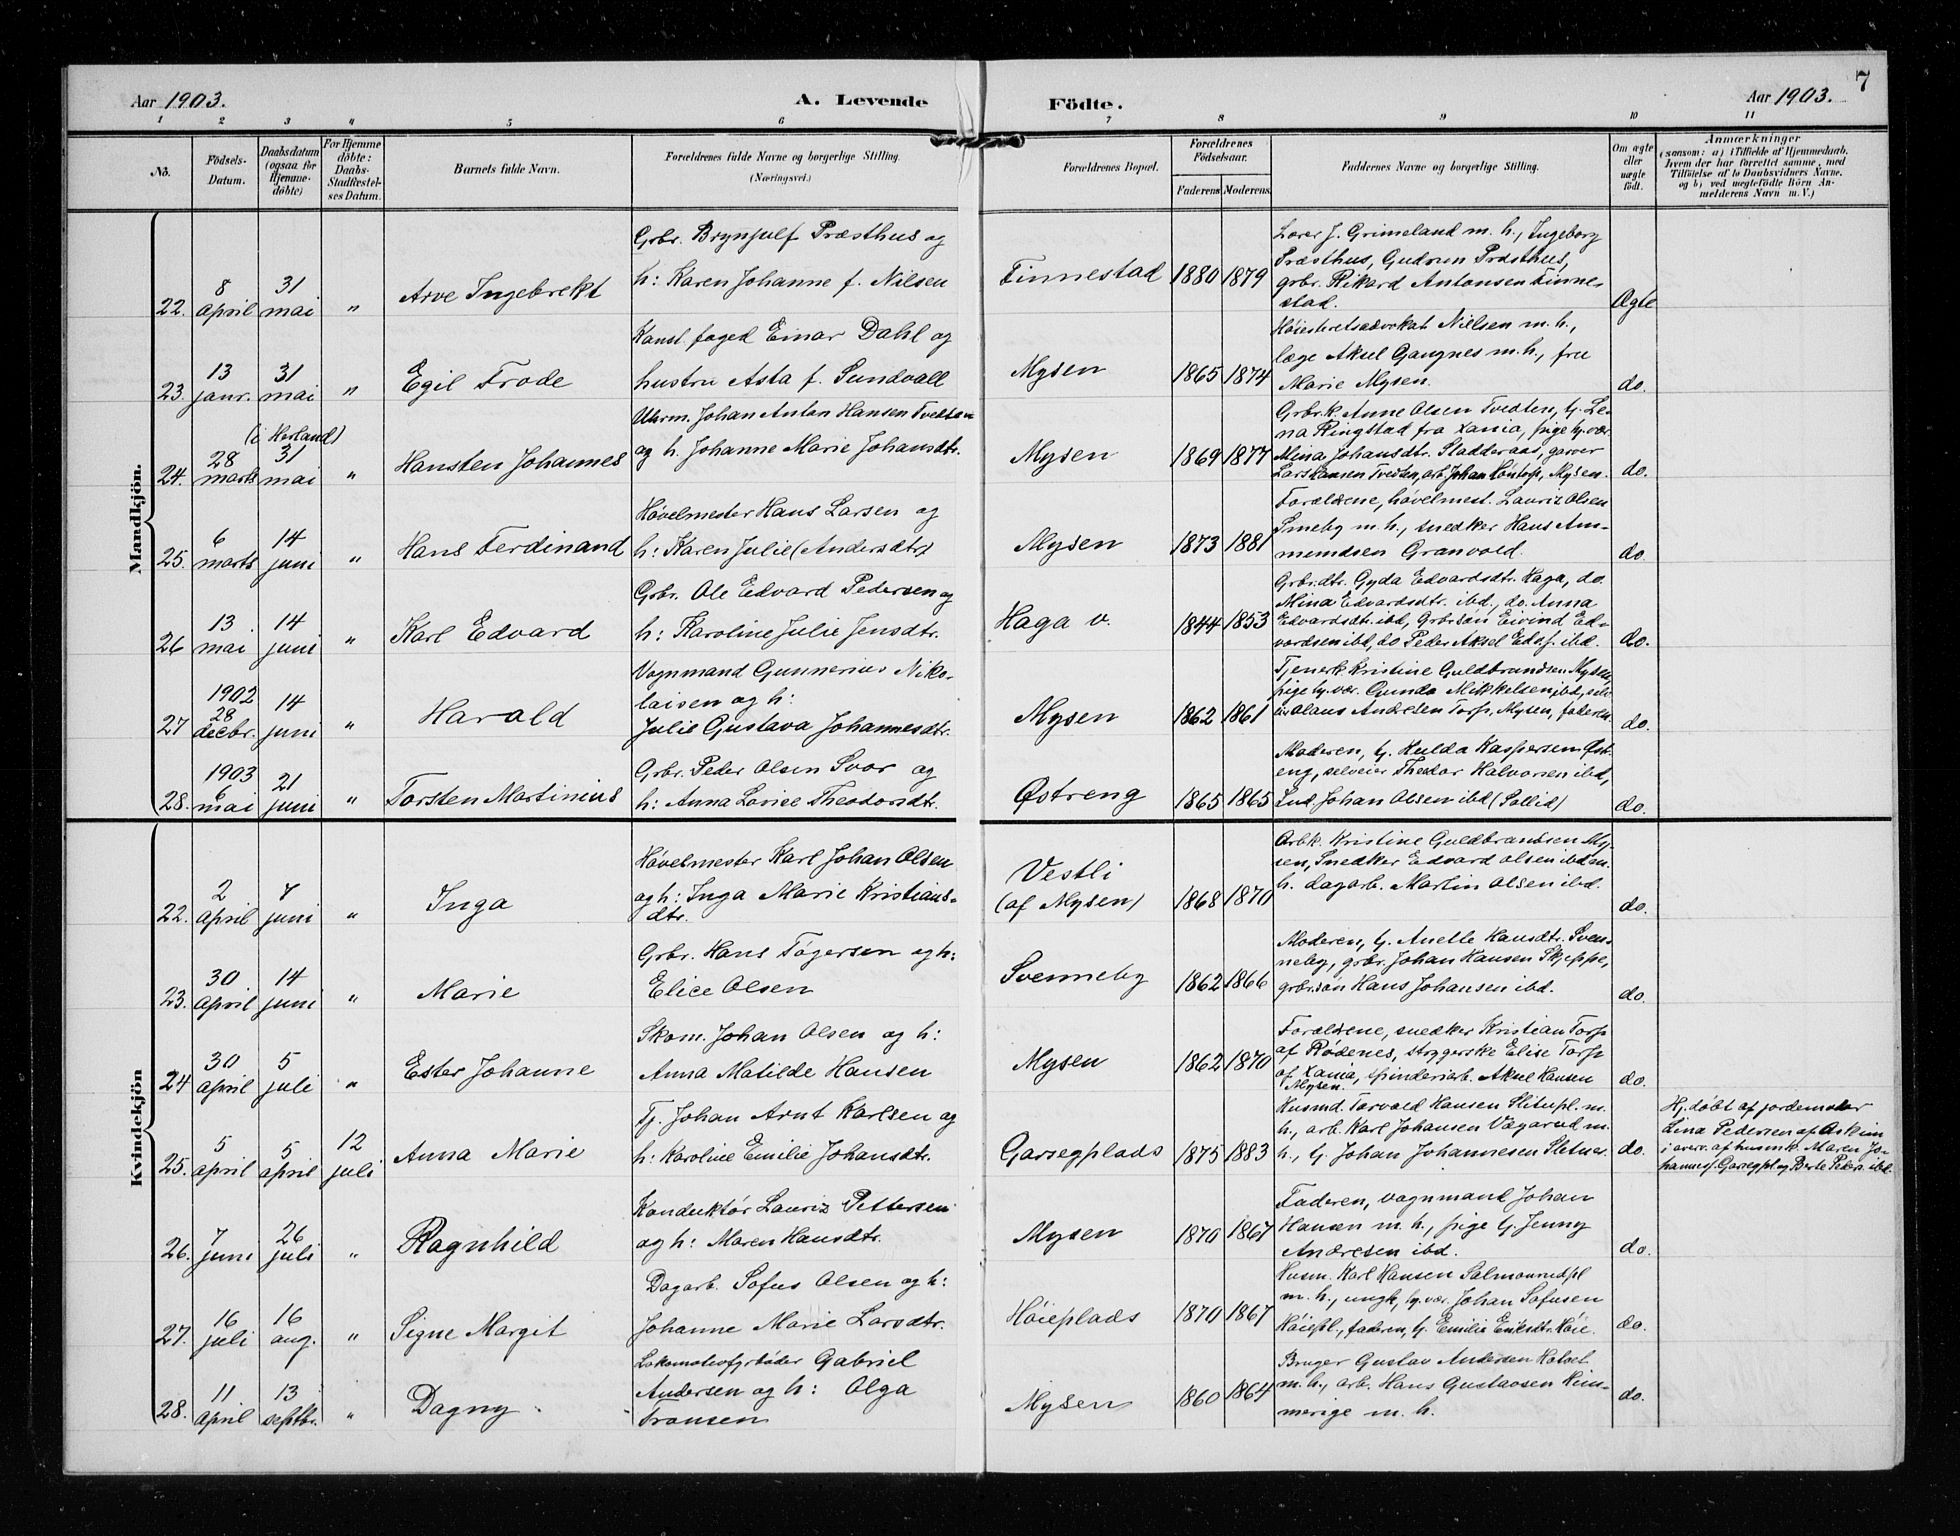 Aar 1903. A. Levende Födte. Aar 1903. 7
1 2 3 4 5 6 7 8 9 10 11
No. Födsels-Datum. Daabsdatum (ogsaa for Hjemme-döbte) For Hjemme döbte: Daabs-Stadfæstel-ses Datum. Barnets fulde Navn. Forældrenes fulde Navne og borgerlige Stilling. (Næringsvei.) Forældrenes Bopæl. Forældrenes Födselsaar. Faderens Moderens Faddernes Navne og borgerlige Stilling. Om ægte eller uægte födt. Anmærkninger (saasom: a) i Tilfælde af Hjemmedaab, hvem der har forrettet samme, med Tilföielse af to Daabsvidners Navne, og b) ved uægtefödte Börn An-melderens Navn m. V.)
Mandkjön.
22. 8 april 31 mai " Arve Ingebrekt Grbr. Brynjulf Præsthus og h: Karen Johanne f. Nilsen Finnestad 1880 1879 Lærer J. Grimeland m. h., Ingeborg Præsthus, Gudrun Præsthus, grbr. Rikard Antonsen Finne-stad. Ægte
23. 13 janr. 31 mai " Egil Frode Konst. foged Einar Dahl og hustru Asta f. Sundvall Mysen 1865 1874 Høiesteretsadvokat Nielsen m. h., læge Aksel Gaugnes m. h., fru Marie Mysen. do.
24. 28 marts (i Herland) 31 mai " Hansten Johannes Uhrm. Johan Anton Hansen Tvedten og h. Johanne Marie Johansdtr. Mysen 1869 1877 Grbr.k. Anne Olsen Tvedten, tj. Le-na Ringstad fra Xania, pige tj. vær. Mina Johansdtr. Sladderaas, garver Lars Hansen Tvedten, arb. Johan Mysen. do.
25. 6 marts 14 juni " Hans Ferdinand Høvelmester Hans Larsen og h: Karen Julie (Andersdtr) Mysen 1873 1881 Forældrene, høvelmest. Lauriz Olsen Smeby m. h., snedker Hans Am-mundsen Granvold. do.
26 13 mai 14 juni " Karl Edvard Grbr. Ole Edvard Pedersen og h: Karoline Julie Jensdtr. Haga v. 1844 1853 Grbr.dtr. Gyda Edvardsdtr. Haga, do. Mina Edvardsdtr. ibd., do. Anna Edvardsdtr. ibd, Grbr.søn Eivind Ed-vardsen ibd, do Peder Aksel Eds. ibd. do.
27 1902 28 decbr. 14 juni " Harald Vognmand Gunnerius Niko-laisen og h: Julie Gustava Johannesdtr. Mysen 1862 1861 Tjener.k Kristine Guldbrandsen Mysen, pige tj. vær. Gunda Mikkelsen ibd, Olaus Andresen Torp, Mysen, faderen. do.
28. 1903 6 mai 21 juni " Torsten Martinius Grbr. Peder Olsen Svor og h: Anna Lovise Theodorsdtr. Østreng 1865 1865 Moderen, tj. Hulda Kaspersen Øst-eng, selveier Theodor Halvorsen ibd, Johan Olsen ibd (Sollid) do.
Kvindekjön
22. 2 april 7 juni " Inga Høvelmester Karl Johan Olsen og h: Inga Marie Kristians-dtr. Vestli (af Mysen) 1868 1870 Arb.k. Kristine Guldbrandsen My-sen, Snedker Edvard Olsen ibd m. h. dagarb. Martin Olsen ibd. do.
23. 30 april 14 juni " Marie Grbr. Hans Tøgersen og h: Elice Olsen Svenneby 1862 1866 Moderen, tj. Anette Hansdtr. Sven-neby, grbr. Johan Hansen Skjeppe, grbr.søn Hans Johansen ibd. do.
24 30 april 5 juli " Ester Johanne Skom. Johan Olsen og h: Anna Matilde Hansen Mysen 1862 1870 Forældrene, snedker Kristian Torp af Rødenes, strygerske Elise Torp af Xania, spinderiarb. Aksel Hansen Mysen. do.
25. 5 april 5 april 12 juli Anna Marie Tj. Johan Arnt Karlsen og h: Karoline Emilie Johansdtr. Garsegplads 1875 1883 Husmd. Torvald Hansen Slitupl. m. h., arb. Karl Johansen Vægarud m. h., tj. Johan Johannesen Sletner. do. Hj. døbt af jordemoder Lina Pedersen af Askim i overv. af husm.k. Maren Jo-hannes. Garsegpl. og Berte Peders. ibd.
26. 7 juni 26 juli " Ragnhild Konduktør Lauriz Pettersen og h: Maren Hansdtr. Mysen 1870 1867 Faderen, vognmand Johan Hansen m. h., pige tj. Jenny Andresen ibd. do.
27. 16 juli 16 aug. " Signe Margit Dagarb. Sofus Olsen og h: Johanne Marie Larsdtr. Høieplads 1870 1867 Husm. Karl Hansen Salmonrudpl m. h., ungk., tj. vær. Johan Sofusen Høiepl., faderen, tj. Emilie Eriksdtr. Høie. do.
28. 11 april 13 septbr. " Dagny Lokomotivfyrbøder Gabriel Andersen og h: Olga Fransen Mysen 1860 1864 Bruger Gustav Andersen m. h., arb. Hans Gustavsen Him-merige m. h. do.